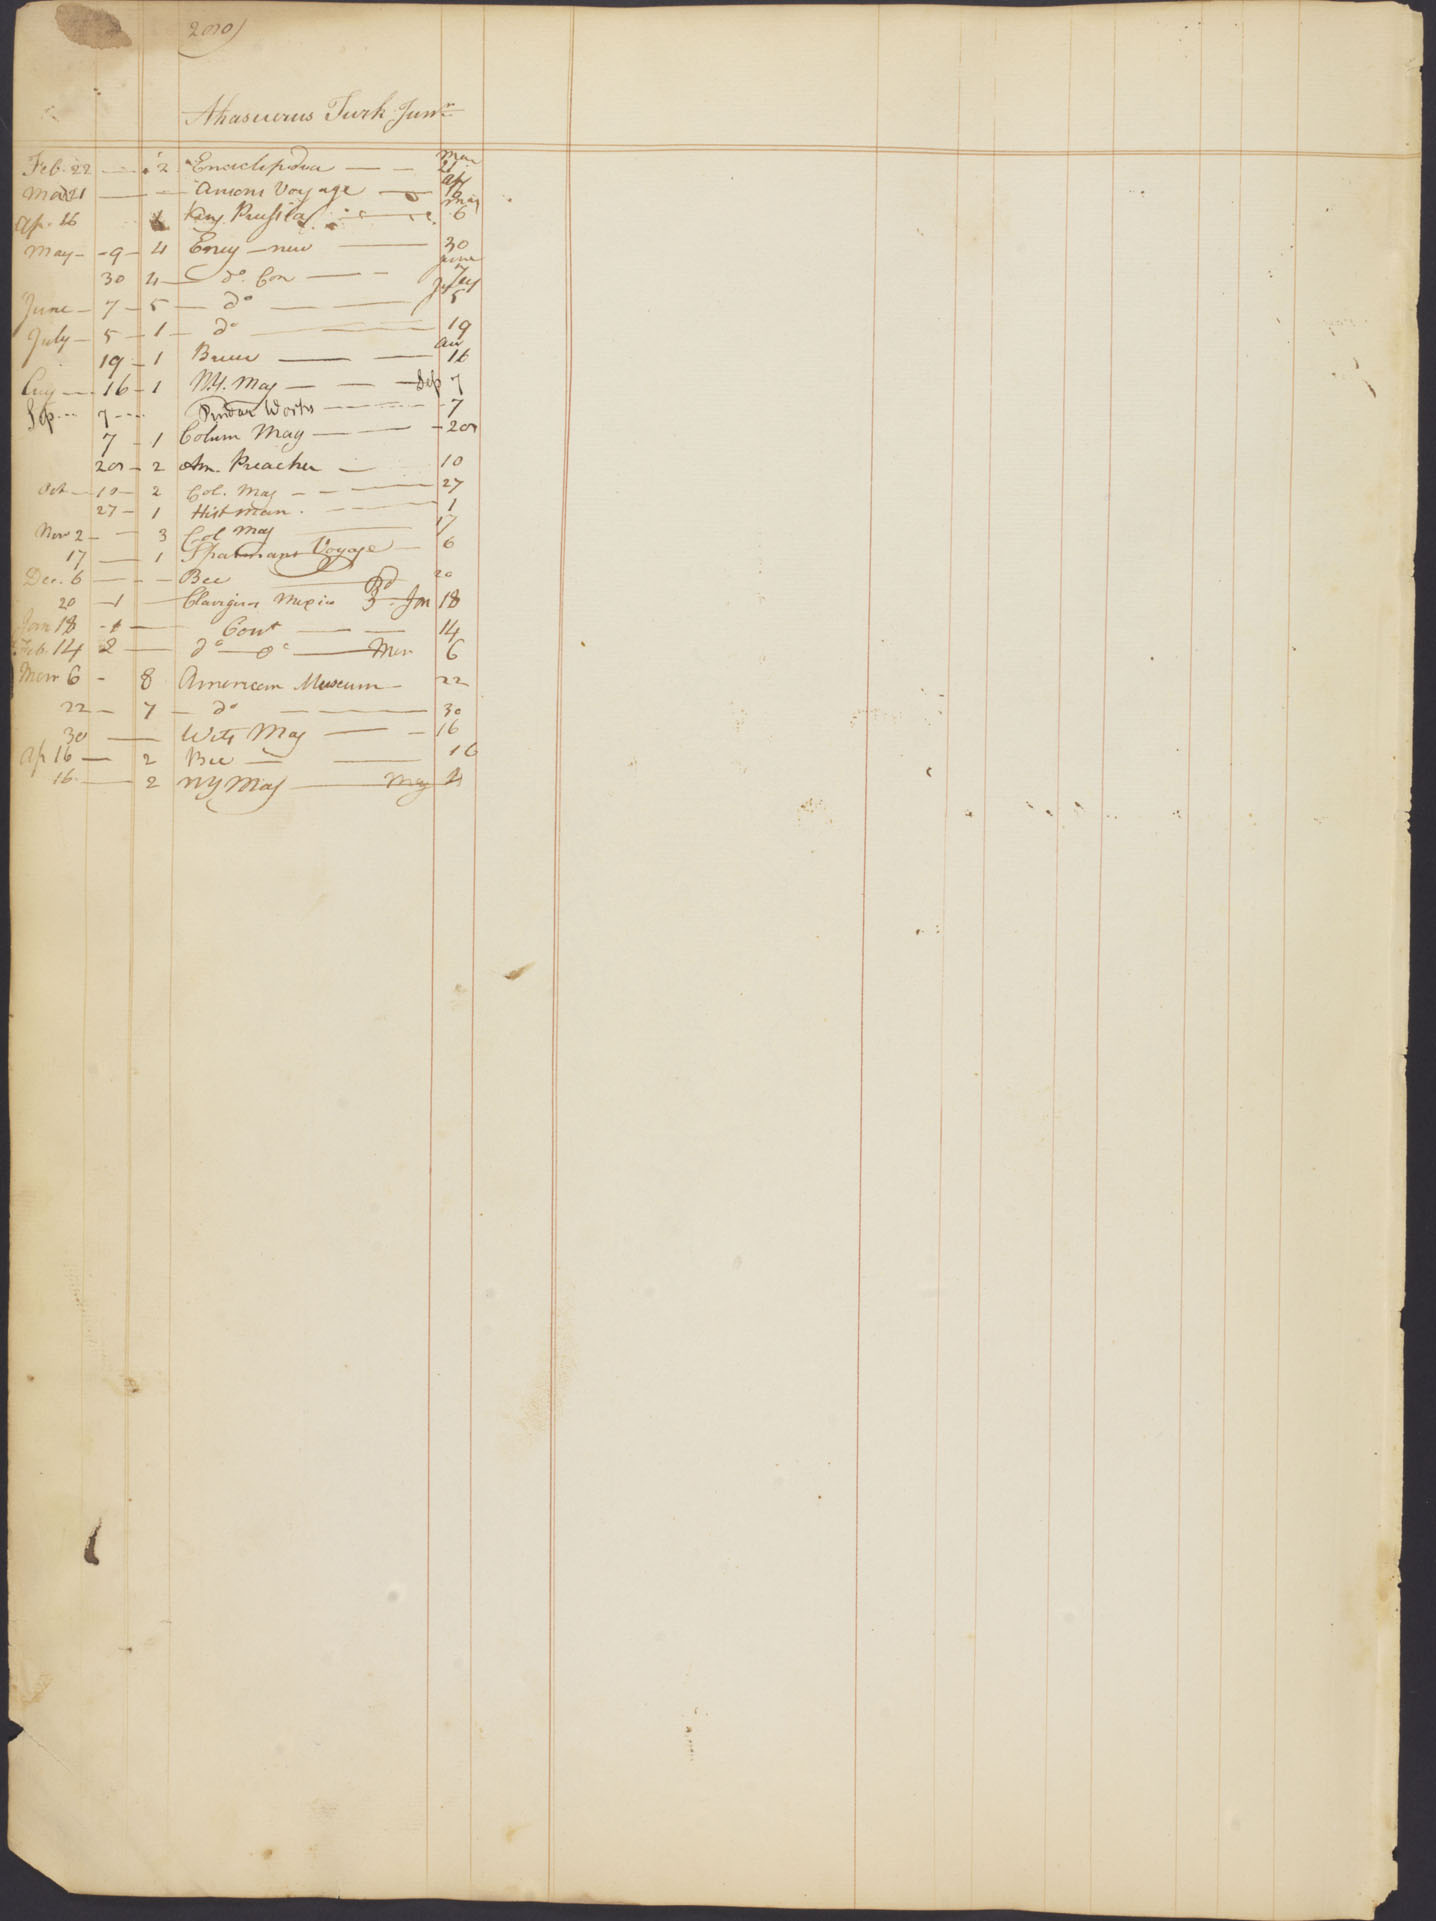 Ahasuerus Turk Junr
Feb. 22 — 2 Enciclipedia — — Mar 21
Mar 21 — — Ansons Voyage — Ap 16
Ap. 16 1 King Prussia — May 6
May - 9 - 4 Ency — new — 30
30 4 — do Con — — June 7
June — 7 — 5 — do — — July 5
July — 5 — 1 — do — 19
19 — 1 Bruce — — Au 16
Aug — 16 - 1 N.Y. Mag — — — Sep 7
Sep — 7 — Pindar Works — 7
7 - 1 Colum Mag — — 20
20 - 2 Am. Preacher — 10
Oct — 10 — 2 Col. Mag — — — 27
27 — 1 Hist Man. — — 1
Nov 2 — — 3 Col Mag — 17
17 — 1 Sparmans Voyage — 6
Dec. 6 — — — Bee — 20
20 — 1 — Clavigero Mexico — Jan 18
Jan 18 - 1 — Cont — — 14
Feb. 14 2 — do — do — Mar 6
Mar 6 - 8 American Museum — 22
22 — 7 — do — — — 30
30 — Wets Mag — — 16
Ap 16 — 2 Bee — — 16
16 — 2 NY Mag — May